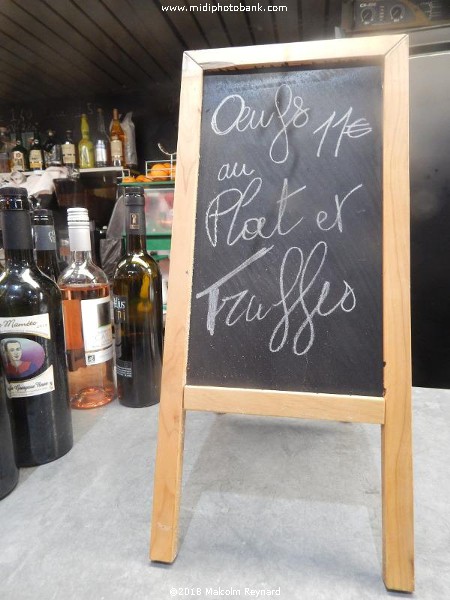 www.midiphotobank.com
Œufs 11€
au
Plat et
Truffes
©2018 Malcolm Reynard